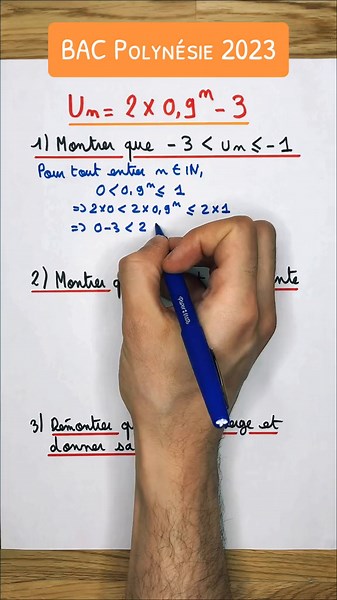 BAC POLYNÉSIE 2023
Un = 2 × 0,9^n - 3
1) Montrer que -3 < un ≤ -1
Pour tout entier n ∈ IN,
0 < 0,9^n ≤ 1
=> 2×0 < 2×0,9^n ≤ 2×1
=> 0-3 < 2
2) Montrer
3) Démontrer
donner sa